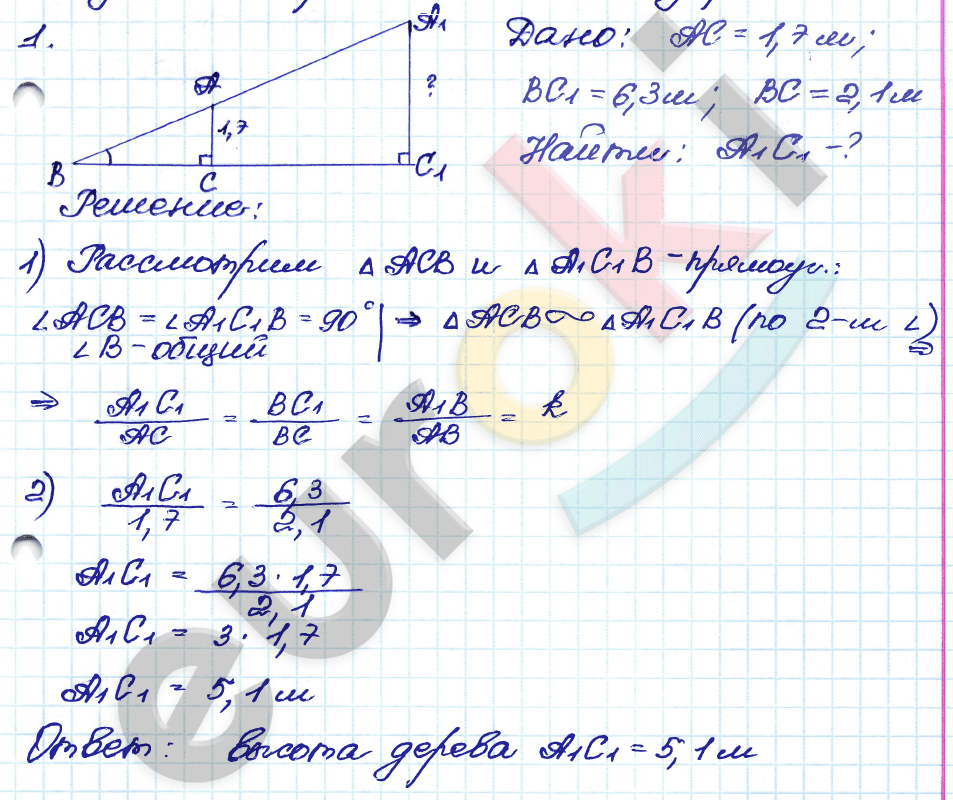 1.
A1
A
?
1,7
B
C
C1
Дано: AC = 1,7 м;
BC1 = 6,3 м; BC = 2,1 м
Найти: A1C1 - ?
Решение:
1) Рассмотрим Δ ACB и Δ A1C1B - прямоуг.:
∠ACB = ∠A1C1B = 90° | ⇒ Δ ACB ∾ Δ A1C1B (по 2-м ∠)
∠B - общий
⇒ A1C1/AC = BC1/BC = A1B/AB = k
2) A1C1/1,7 = 6,3/2,1
A1C1 = 6,3 · 1,7/2,1
A1C1 = 3 · 1,7
A1C1 = 5,1 м
Ответ: высота дерева A1C1 = 5,1 м
euroki